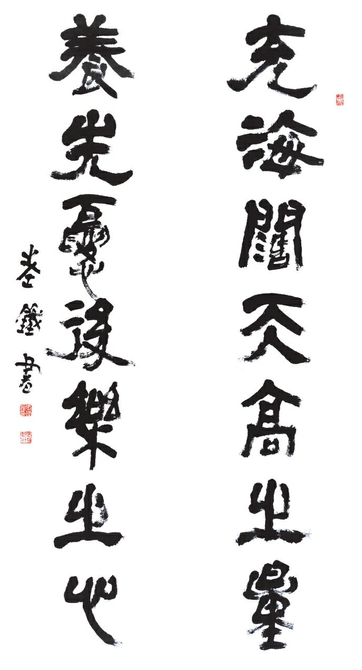 充海闊天高之量
養先憂後樂之心
鐵書